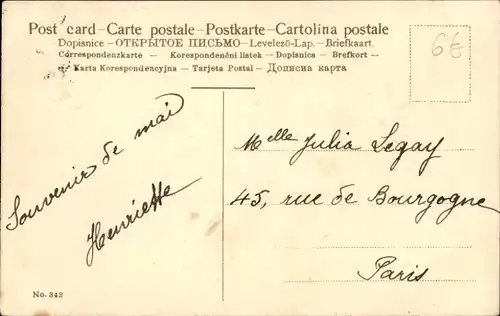 Post card – Carte postale – Postkarte – Cartolina postale
Dopisnice – ОТКРЫТОЕ ПИСЬМО – Levelező-Lap. – Briefkaart.
Correspondenzkarte – Korespondenční listek – Dopisnica – Brefkort –
Karta Korespondencyjna – Tarjeta Postal – Дописна карта
6€
Souvenir de mai
Henriette
Melle Julia Legay
45, rue de Bourgogne
Paris
No. 342